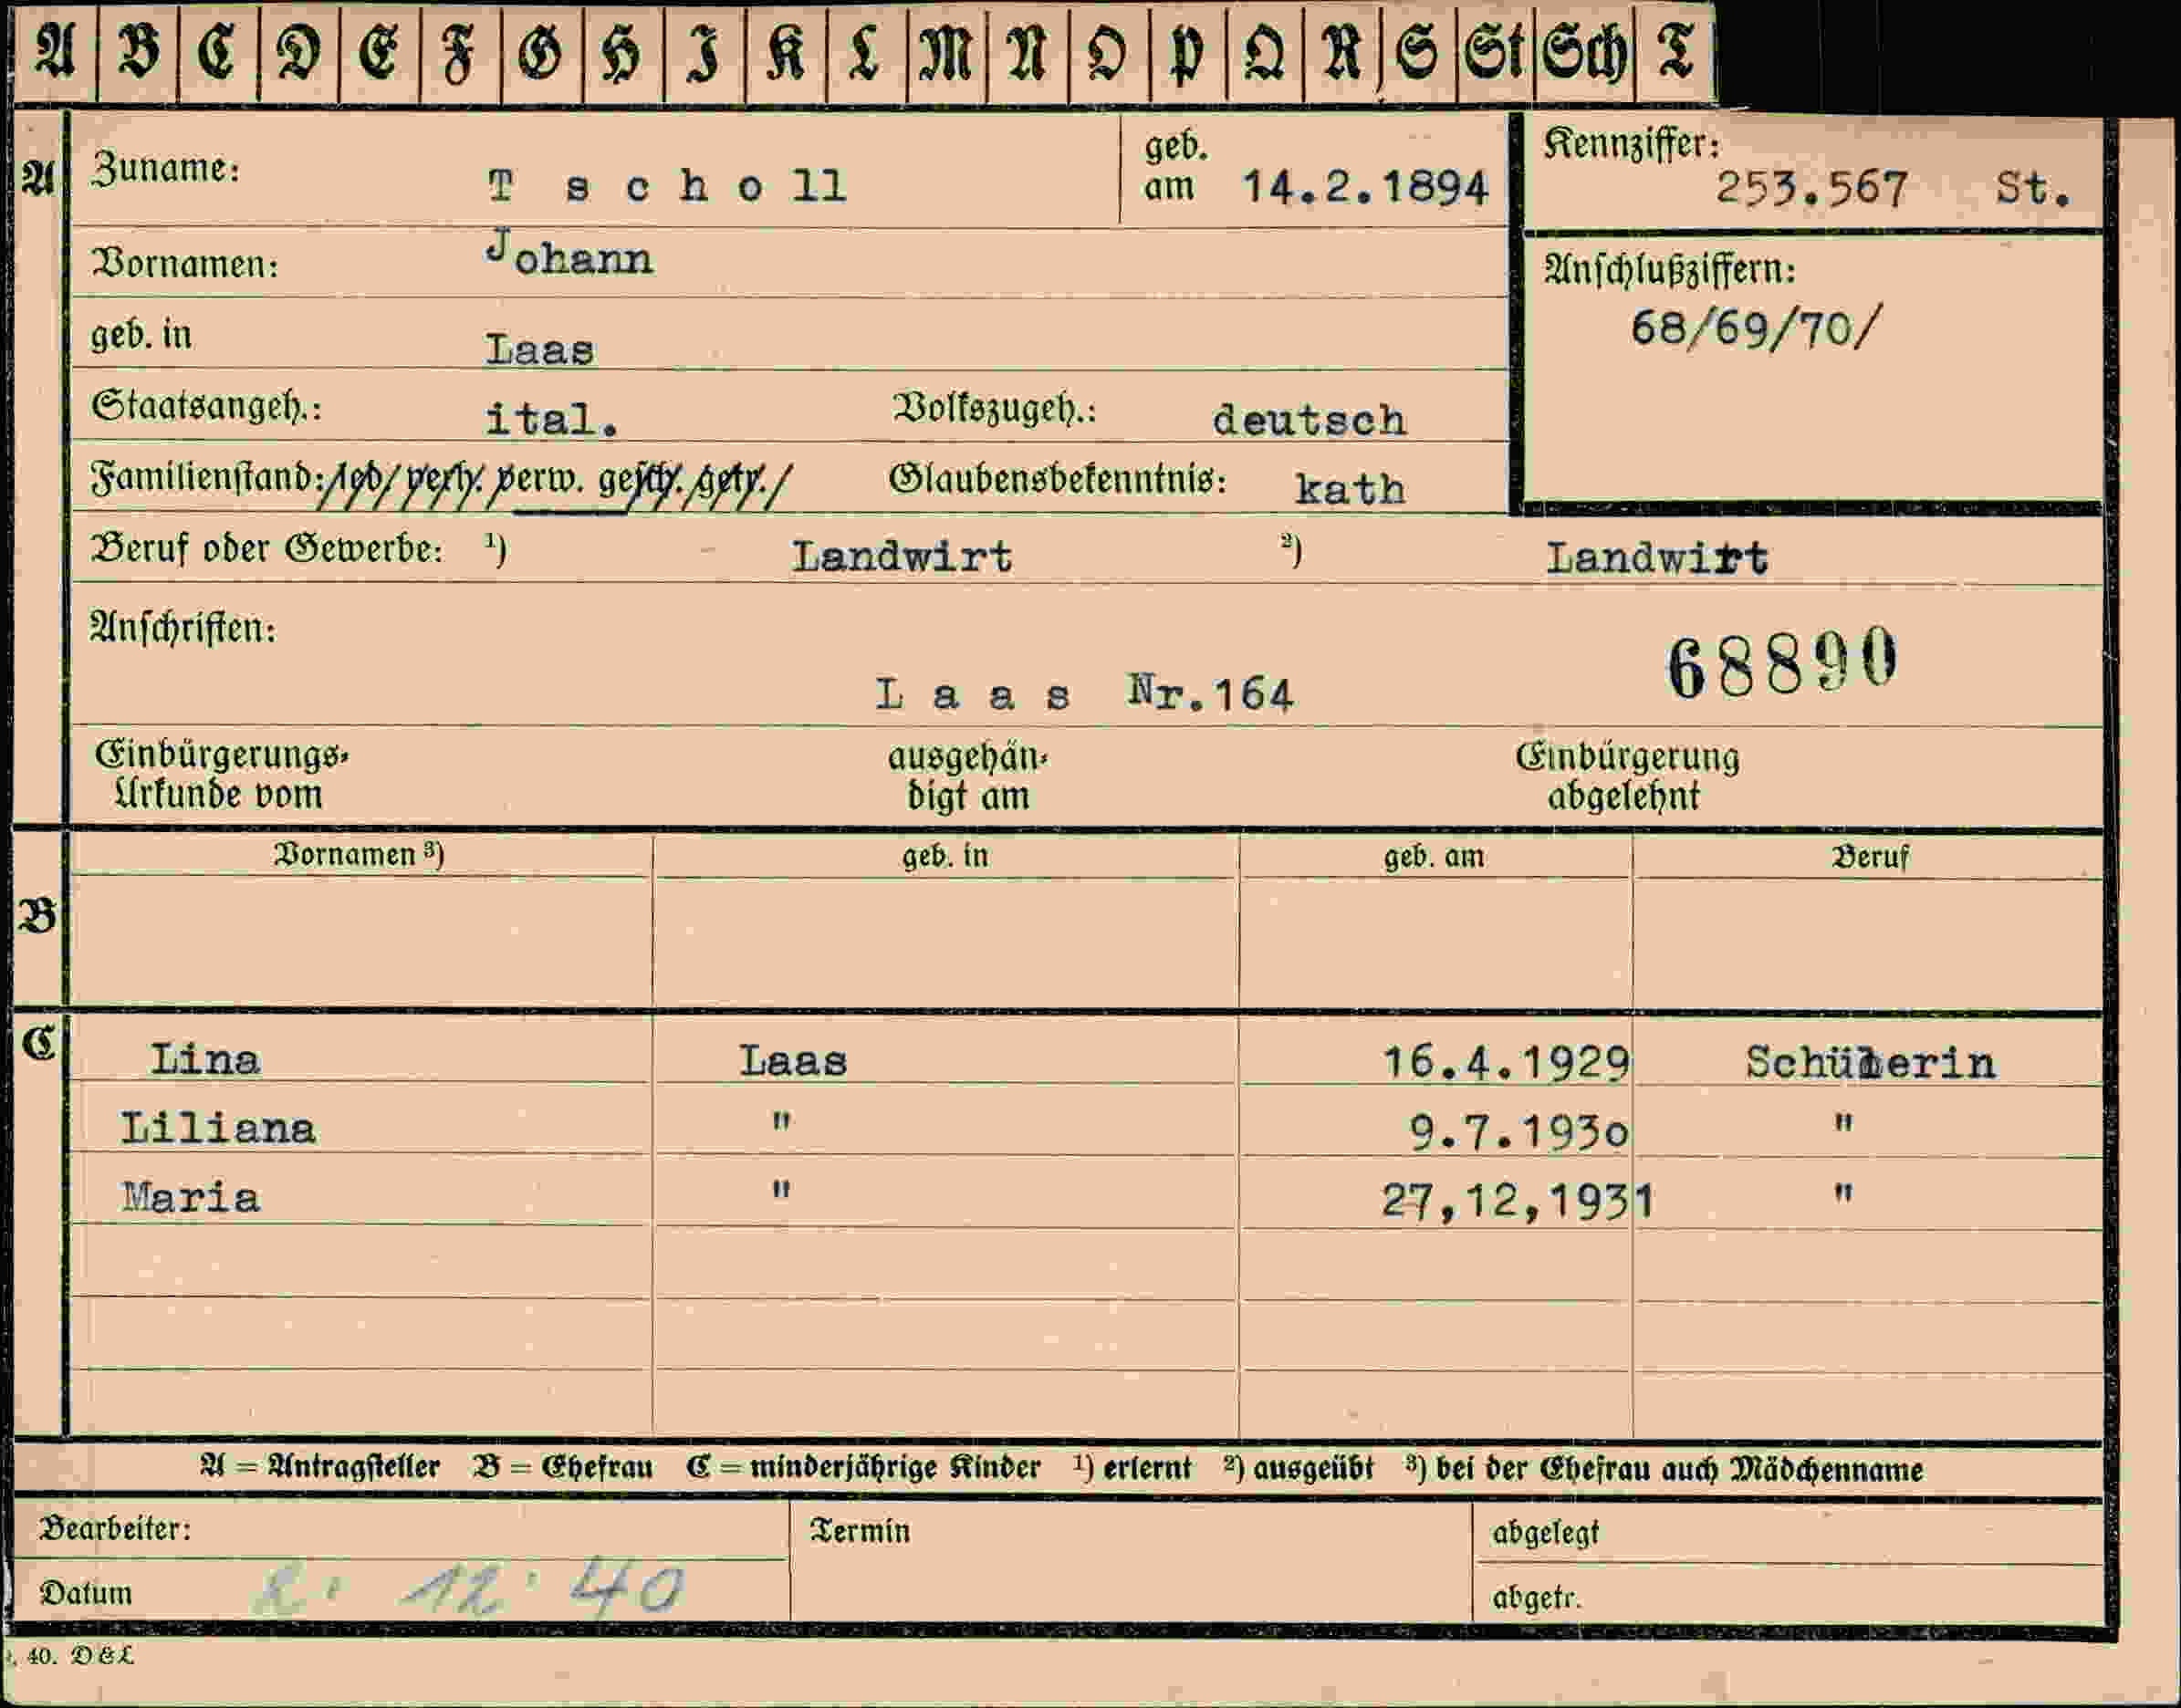 A B C D E F G H I K L M N O P Q R S St Sch T
A Zuname: Tscholl geb. am 14.2.1894 Kennziffer: 253.567 St.
Vornamen: Johann Anschlußziffern:
68/69/70/
geb. in Laas
Staatsangeh.: ital. Volkszugeh.: deutsch
Familienstand: led/ verh. verw. gesch. getr./ Glaubensbekenntnis: kath
Beruf oder Gewerbe: ¹) Landwirt ²) Landwirt
Anschriften:
Laas Nr.164 68890
Einbürgerungs-Urkunde vom ausgehändigt am Einbürgerung abgelehnt
B Vornamen ³) geb. in geb. am Beruf
C Lina Laas 16.4.1929 Schülerin
Liliana " 9.7.1930 "
Maria " 27,12,1931 "
A = Antragsteller B = Ehefrau C = minderjährige Kinder ¹) erlernt ²) ausgeübt ³) bei der Ehefrau auch Mädchenname
Bearbeiter: Termin abgelegt
Datum 2. 12. 40 abgetr.
40. D&L